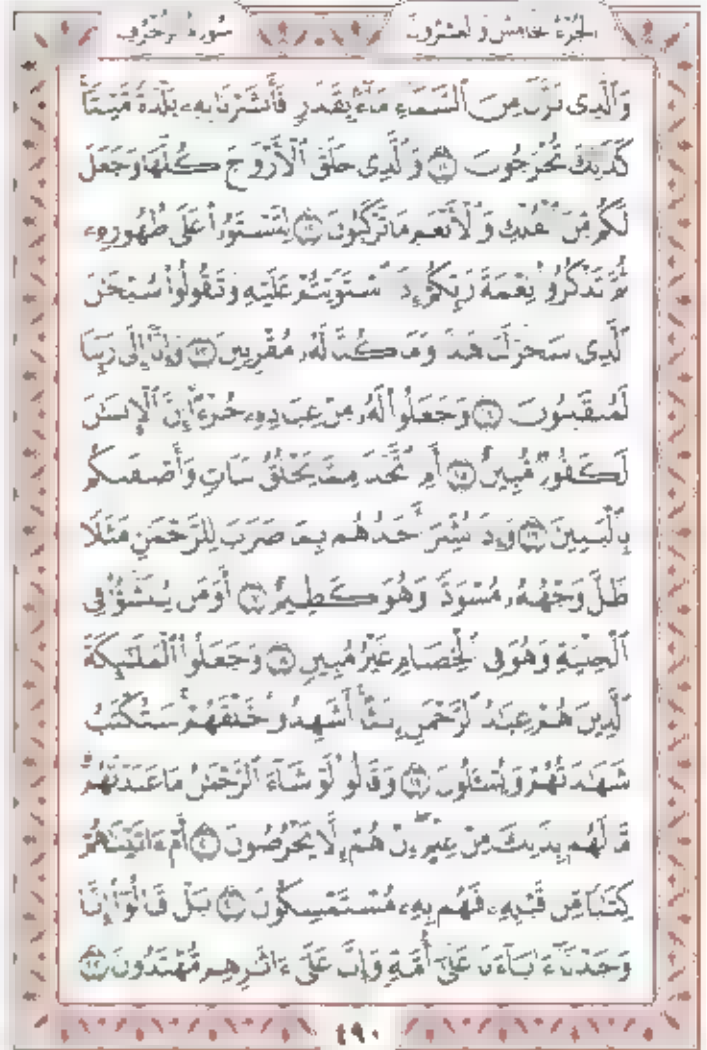 الجزء الخامس والعشرون سورة الزخرف
وَٱلَّذِى نَزَّلَ مِنَ ٱلسَّمَآءِ مَآءًۢ بِقَدَرٍ فَأَنشَرْنَا بِهِۦ بَلْدَةً مَّيْتًا
كَذَٰلِكَ تُخْرَجُونَ ١١ وَٱلَّذِى خَلَقَ ٱلْأَزْوَٰجَ كُلَّهَا وَجَعَلَ
لَكُم مِّنَ ٱلْفُلْكِ وَٱلْأَنْعَٰمِ مَا تَرْكَبُونَ ١٢ لِتَسْتَوُۥا۟ عَلَىٰ ظُهُورِهِۦ
ثُمَّ تَذْكُرُوا۟ نِعْمَةَ رَبِّكُمْ إِذَا ٱسْتَوَيْتُمْ عَلَيْهِ وَتَقُولُوا۟ سُبْحَٰنَ
ٱلَّذِى سَخَّرَ لَنَا هَٰذَا وَمَا كُنَّا لَهُۥ مُقْرِنِينَ ١٣ وَإِنَّآ إِلَىٰ رَبِّنَا
لَمُنقَلِبُونَ ١٤ وَجَعَلُوا۟ لَهُۥ مِنْ عِبَادِهِۦ جُزْءًا إِنَّ ٱلْإِنسَٰنَ
لَكَفُورٌ مُّبِينٌ ١٥ أَمِ ٱتَّخَذَ مِمَّا يَخْلُقُ بَنَاتٍ وَأَصْفَىٰكُم
بِٱلْبَنِينَ ١٦ وَإِذَا بُشِّرَ أَحَدُهُم بِمَا ضَرَبَ لِلرَّحْمَٰنِ مَثَلًا
ظَلَّ وَجْهُهُۥ مُسْوَدًّا وَهُوَ كَظِيمٌ ١٧ أَوَمَن يُنَشَّؤُا۟ فِى
ٱلْحِلْيَةِ وَهُوَ فِى ٱلْخِصَامِ غَيْرُ مُبِينٍ ١٨ وَجَعَلُوا۟ ٱلْمَلَٰٓئِكَةَ
ٱلَّذِينَ هُمْ عِبَٰدُ ٱلرَّحْمَٰنِ إِنَٰثًا أَشَهِدُوا۟ خَلْقَهُمْ سَتُكْتَبُ
شَهَٰدَتُهُمْ وَيُسْـَٔلُونَ ١٩ وَقَالُوا۟ لَوْ شَآءَ ٱلرَّحْمَٰنُ مَا عَبَدْنَٰهُم
مَّا لَهُم بِذَٰلِكَ مِنْ عِلْمٍ إِنْ هُمْ إِلَّا يَخْرُصُونَ ٢٠ أَمْ ءَاتَيْنَٰهُمْ
كِتَٰبًا مِّن قَبْلِهِۦ فَهُم بِهِۦ مُسْتَمْسِكُونَ ٢١ بَلْ قَالُوٓا۟ إِنَّا
وَجَدْنَآ ءَابَآءَنَا عَلَىٰٓ أُمَّةٍ وَإِنَّا عَلَىٰٓ ءَاثَٰرِهِم مُّهْتَدُونَ ٢٢
٤٩٠